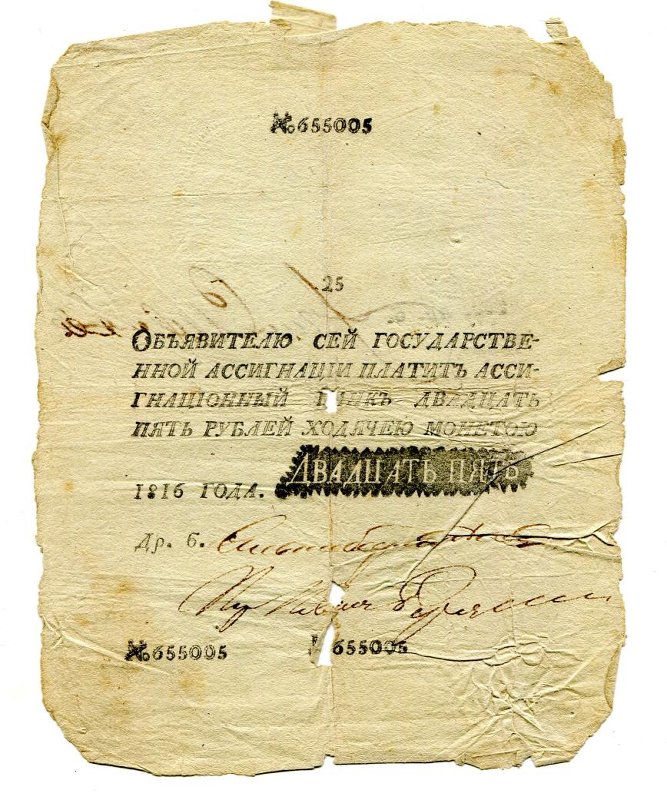 №655005
25
ОБЪЯВИТЕЛЮ СЕЙ ГОСУДАРСТВЕ-
ННОЙ АССИГНАЦІИ ПЛАТИТЪ АССИ-
ГНАЦІОННЫЙ БАНКЪ ДВАДЦАТЬ
ПЯТЬ РУБЛЕЙ ХОДЯЧЕЮ МОНЕТОЮ
1816 ГОДА. ДВАДЦАТЬ ПЯТЬ
Др. б.
№655005 №655005